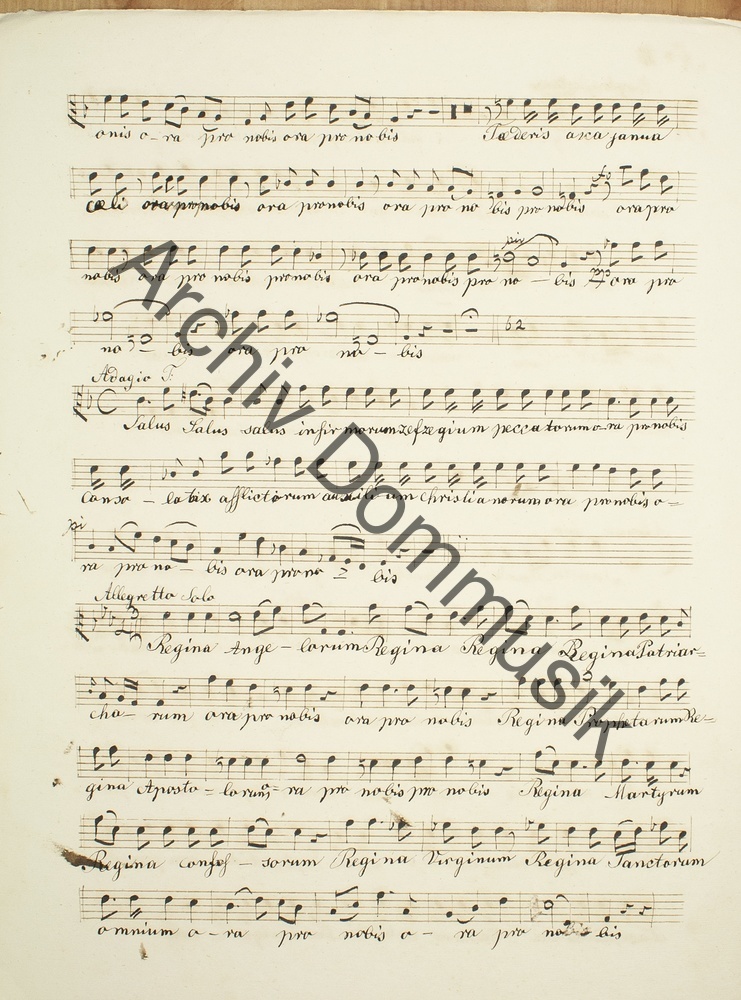 onis o-ra pro nobis ora pro nobis Fæderis arca janua
cœli ora pro nobis ora pronobis ora pro no bis pro nobis ora pro
fo
nobis ora pro nobis pronobis ora pronobis pro no - bis ora pro
pia
no - bis ora pro no - bis
62
Adagio T:
Salus Salus salus infirmorum refugium peccatorum ora pronobis
Conso - latrix afflictorum auxilium Christianorum ora pronobis o=
pi
ra pro no - bis ora pro no - bis
Allegretto Solo
Regina Ange - lorum Regina Regina Regina Patriar=
cha - rum ora pro nobis ora pro nobis Regina Prophetarum Re=
gina Aposto - lorum o- ra pro nobis pro nobis Regina Martyrum
Regina Confes - sorum Regina Virginum Regina Sanctorum
omnium o - ra pro nobis o - ra pro no bis
Archiv Dommusik